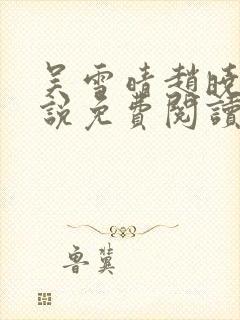 吴雪晴趙曉
說免費閱讀
魯冀